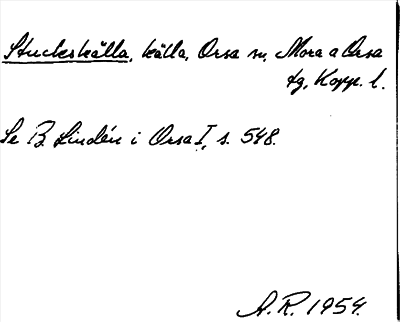 Stuckskälla, källa, Orsa sn, Mora o Orsa
tg, Kopp. l.
Se B. Lindén i Orsa I, s. 548.
A. R. 1954.